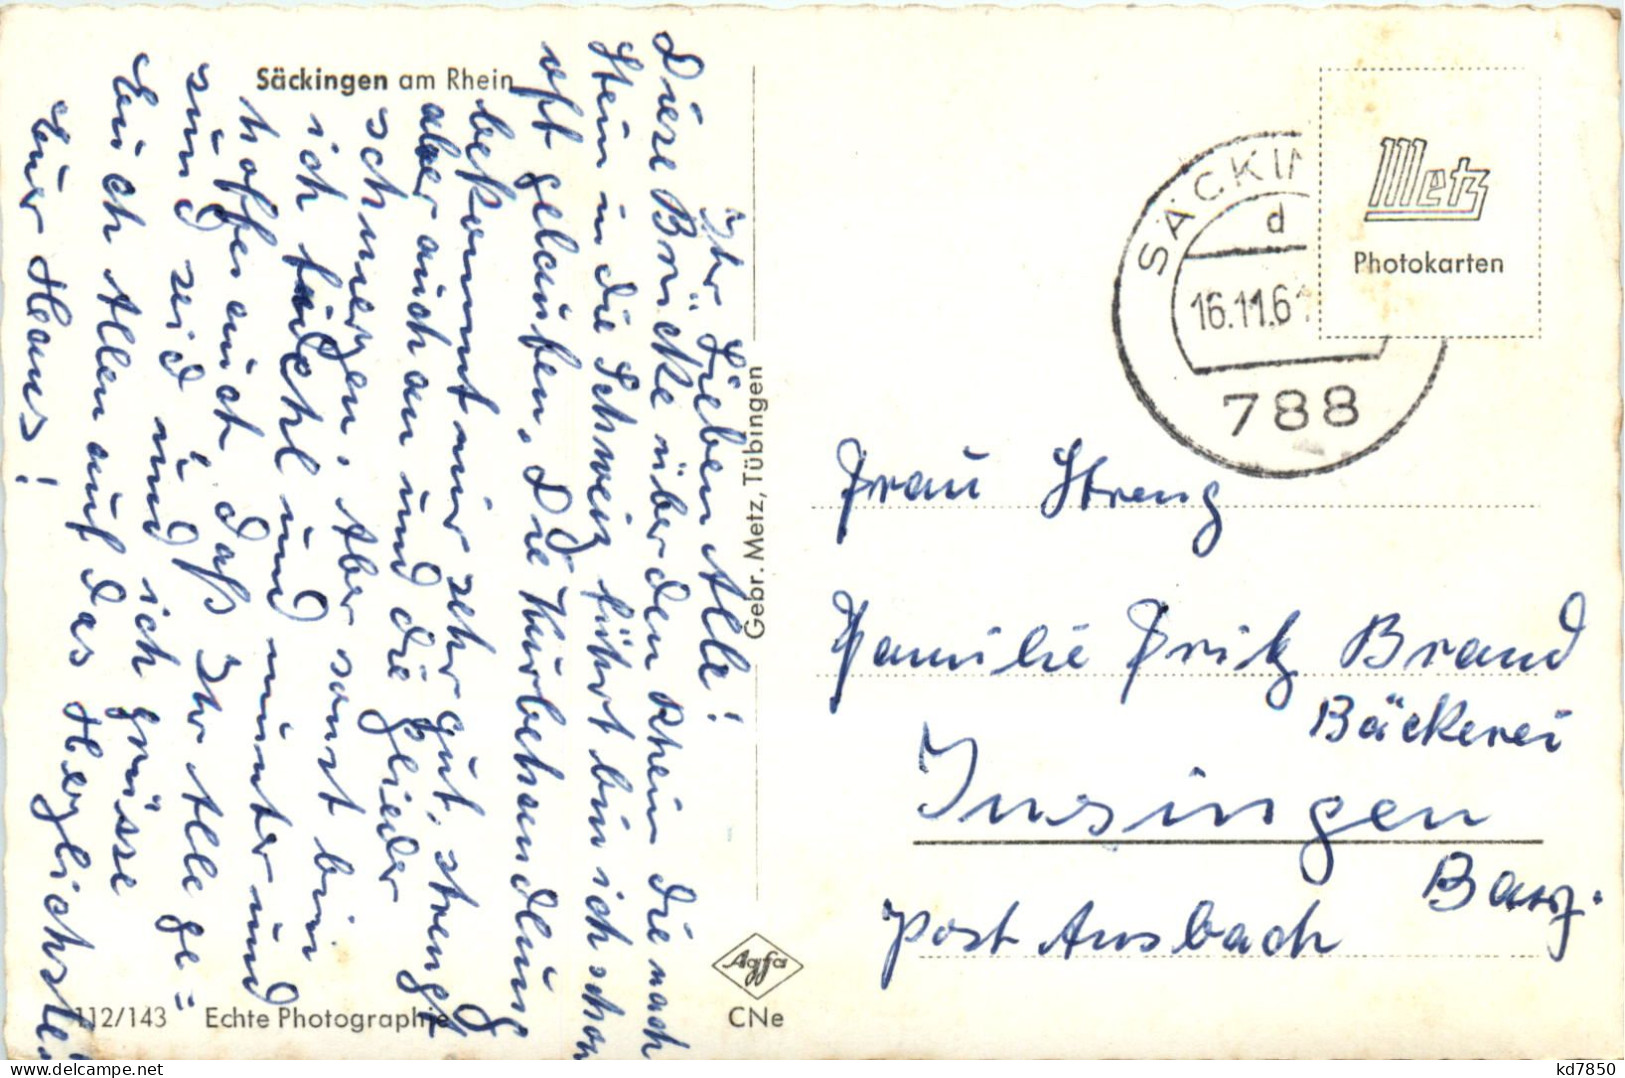 Säckingen am Rhein
Ihr Lieben Alle!
Diese Brücke über den Rhein die nach
Stein in die Schweiz führt bin ich schon
oft gelaufen. Die Kurbehandlung
bekommt mir sehr gut, strengt
aber auch an und die Glieder
schmerzen. Aber sonst bin
ich fidel und munter und
hoffe auch daß Ihr Alle ge=
sund seid und ich grüsse
Euch Allen auf das Herzlichste
Euer Hans!
112/143 Echte Photographie
Gebr. Metz, Tübingen
Agfa
CNe
Metz
Photokarten
SÄCKIN
d
16.11.61
788
Frau Streng
Familie Fritz Brand
Bäckerei
Insingen
Bay.
Post Ansbach
kd7850